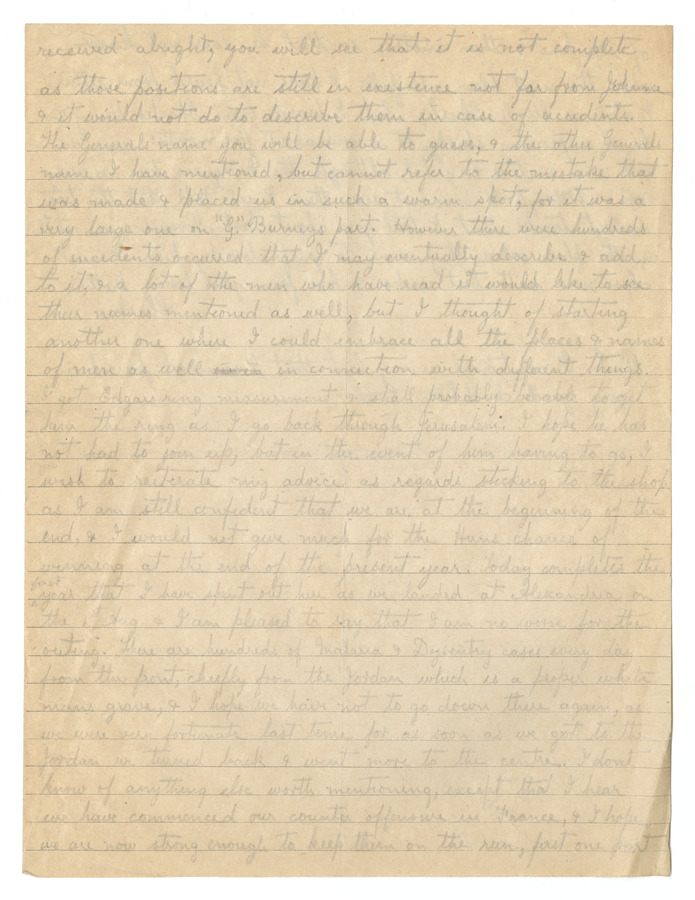 received alright, you will see that it is not complete
as those positions are still in existence not far from
& it would not do to describe them in case of accidents.
The Generals name you will be able to guess, & the other Generals
name I have mentioned, but cannot refer to the mistake that
was made & placed us in such a warm spot, for it was a
very large one on "G" Burneys part. However there were hundreds
of incidents occurred that I may eventually describe & add
to it, & a lot of the men who have read it would like to see
their names mentioned as well, but I thought of starting
another one where I could embrace all the places & names
of men as well in connection with different things.
I got Edgars ring measurement & shall probably be able to get
him the ring as I go back through Jerusalem. I hope he has
not had to join up, but in the event of him having to go, I
wish to reiterate my advice as regards sticking to the shop
as I am still confident that we are at the beginning of the
end, & I would not give much for the Huns chance of
winning at the end of the present year. Today completes the
first
year that I have spent out here as we landed at Alexandria on
the 1st Aug & I am pleased to say that I am no worse for the
outing. There are hundreds of Malaria & Dysentry cases every day
from the front, chiefly from the Jordan which is a proper white
mans grave, & I hope we have not to go down there again, as
we were very fortunate last time for as soon as we got to the
Jordan we turned back & went more to the centre. I dont
know of anything else worth mentioning, except that I hear
we have commenced our counter offensive in France, & I hope
we are now strong enough to keep them on the run, first one part